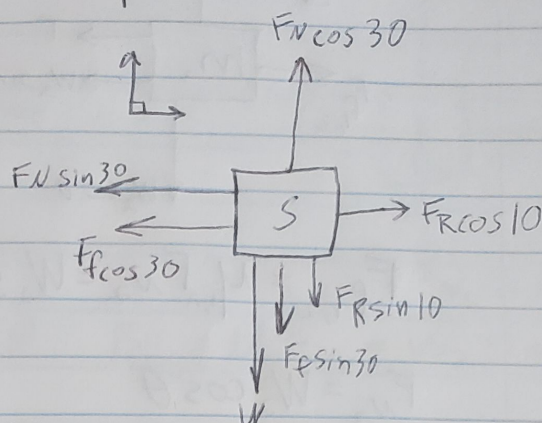 FN cos 30
FN sin 30
S
FR cos 10
Ff cos 30
FR sin 10
Ff sin 30
W